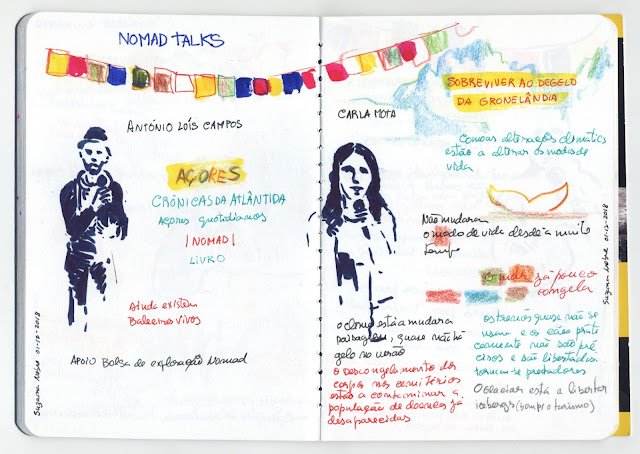 NOMAD TALKS
ANTÓNIO LOÍS CAMPOS
AÇORES
CRÓNICAS DA ATLÂNTIDA
Açores quotidianos
|NOMAD|
LIVRO
Ainda existem
Baleeiros vivos
APOIO Bolsa de exploração Nomad
Suzana Nobre 01-12-2018
CARLA MOTA
SOBREVIVER AO DEGELO
DA GRONELÂNDIA
Como as alterações climatics
estão a alterar os modos de
vida
Não mudaram
o modo de vida desde a muito
tempo
O mar já pouco
congela
o clima está a mudar a
paisagem, quase não há
gelo no verão
O descongelamento dos
corpos nos cemitérios
estão a contaminar a
população de doenças já
desaparecidas
os trenós quase não se
usam e os cães prati
camente não são pre
cisos e são libertados
tornam-se predadores
O glaciar está a libertar
icebergs (bom p/ o turismo)
Suzana Nobre 01-12-2018